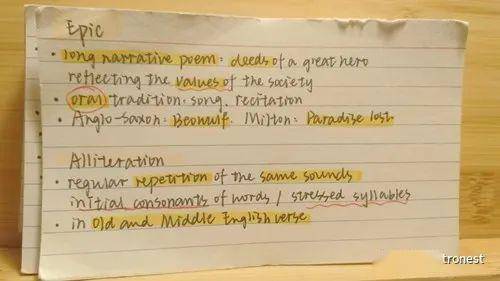 Epic
• long narrative poem: deeds of a great hero
reflecting the values of the society
• oral tradition: song, recitation
• Anglo-Saxon: Beowulf. Milton: Paradise lost.
Alliteration
• regular repetition of the same sounds
initial consonants of words / stressed syllables
• in Old and Middle English verse
tronest